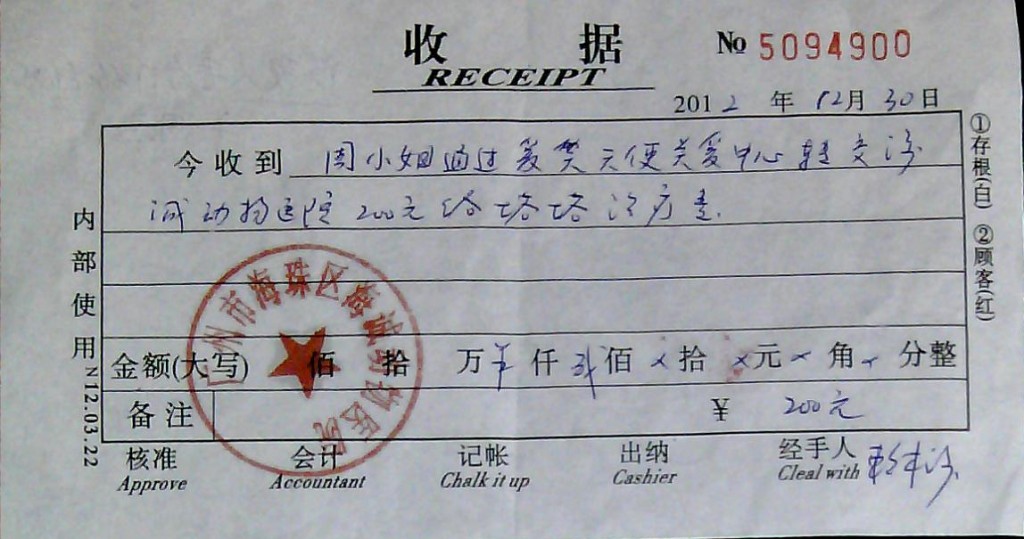 收 据
RECEIPT
No 5094900
2012 年 12月 30日
今收到 周小姐通过 天使关爱中心转交海
诚动物医院 200元给塔塔治疗
金额(大写) 佰 拾 万 仟 贰佰 × 拾 × 元 × 角 × 分整
备注 ¥ 200元
核准 会计 记帐 出纳 经手人
Approve Accountant Chalk it up Cashier Cleal with
内部使用
N12.03.22
①存根(白) ②顾客(红)
广州市海珠区海诚动物医院